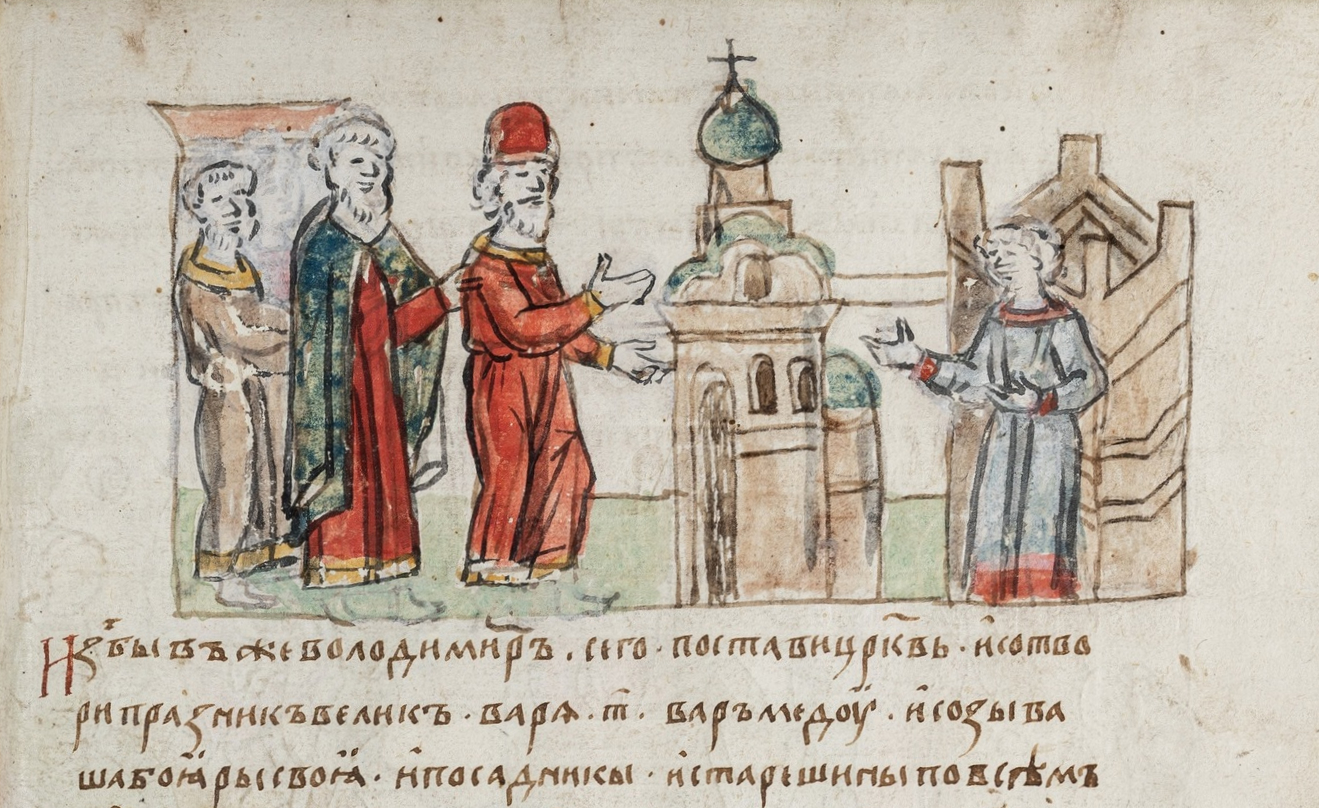 Избывъ же володимиръ . сего · постави цр҃квь · и сотво
ри праздникъ великъ · варѧ · т҃ · варъ медоу · и созыва
ше боꙗры своꙗ · и посадникы · и старѣшины по всѣмъ